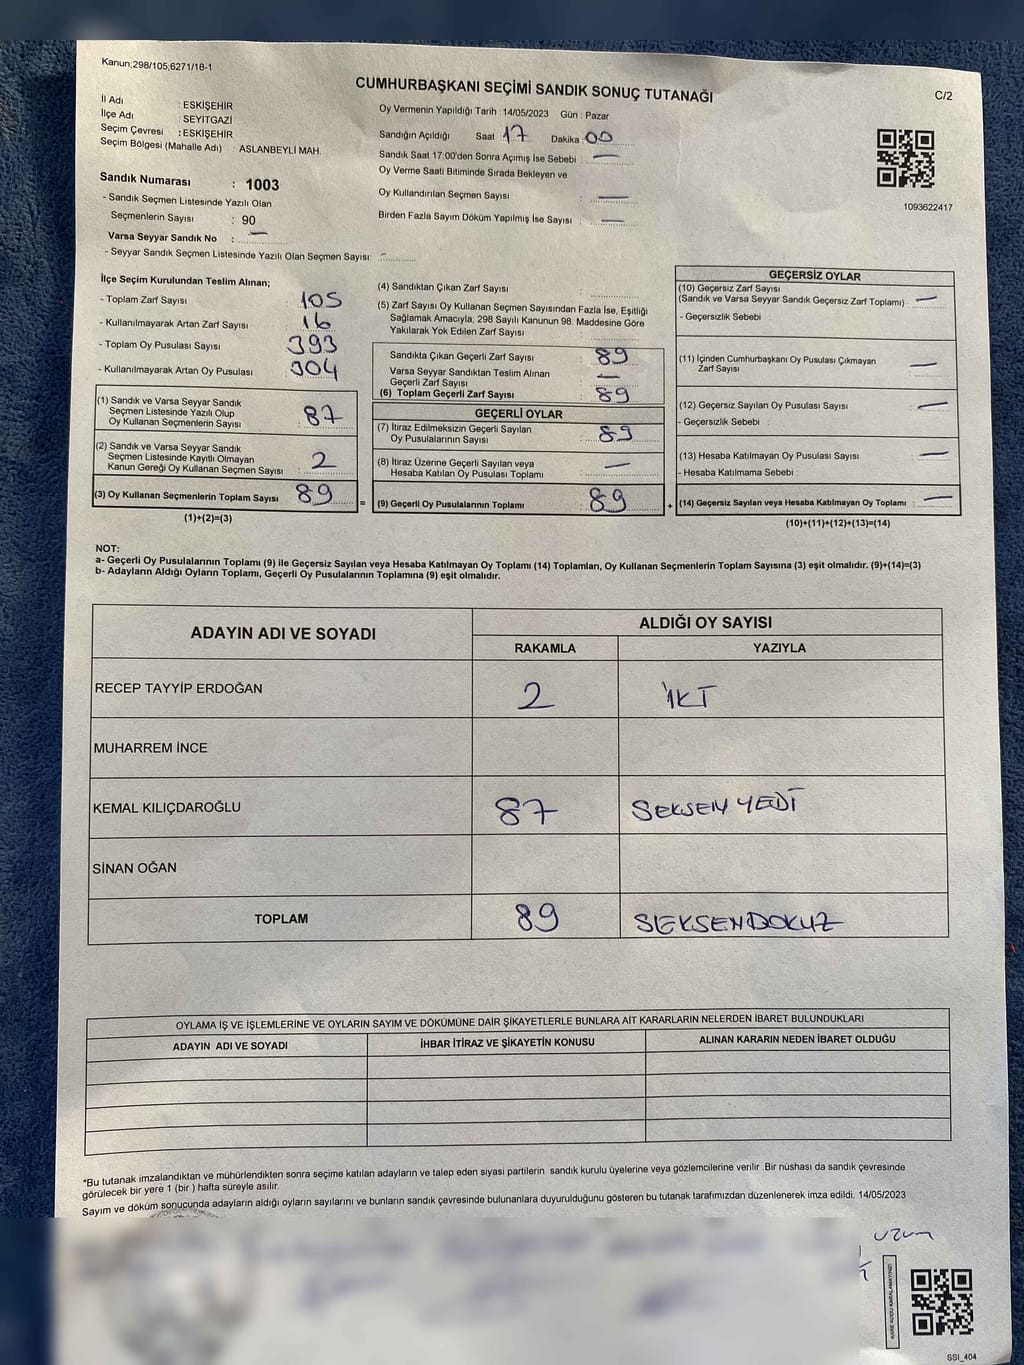 Kanun;298/105;6271/18-1
CUMHURBAŞKANI SEÇİMİ SANDIK SONUÇ TUTANAĞI
C/2
İl Adı : ESKİŞEHİR
İlçe Adı : SEYİTGAZİ
Seçim Çevresi : ESKİŞEHİR
Seçim Bölgesi (Mahalle Adı) : ASLANBEYLİ MAH.
Sandık Numarası : 1003
- Sandık Seçmen Listesinde Yazılı Olan
Seçmenlerin Sayısı : 90
Varsa Seyyar Sandık No : —
- Seyyar Sandık Seçmen Listesinde Yazılı Olan Seçmen Sayısı: -
Oy Vermenin Yapıldığı Tarih : 14/05/2023 Gün : Pazar
Sandığın Açıldığı Saat 17 Dakika 00
Sandık Saat 17:00'den Sonra Açımış İse Sebebi : —
Oy Verme Saati Bitiminde Sırada Bekleyen ve
Oy Kullandırılan Seçmen Sayısı : —
Birden Fazla Sayım Döküm Yapılmış İse Sayısı : —
1093622417
İlçe Seçim Kurulundan Teslim Alınan;
- Toplam Zarf Sayısı : 105
- Kullanılmayarak Artan Zarf Sayısı : 16
- Toplam Oy Pusulası Sayısı : 393
- Kullanılmayarak Artan Oy Pusulası : 304
(1) Sandık ve Varsa Seyyar Sandık
Seçmen Listesinde Yazılı Olup
Oy Kullanan Seçmenlerin Sayısı : 87
(2) Sandık ve Varsa Seyyar Sandık
Seçmen Listesinde Kayıtlı Olmayan
Kanun Gereği Oy Kullanan Seçmen Sayısı : 2
(3) Oy Kullanan Seçmenlerin Toplam Sayısı : 89 =
(1)+(2)=(3)
(4) Sandıktan Çıkan Zarf Sayısı :
(5) Zarf Sayısı Oy Kullanan Seçmen Sayısından Fazla İse, Eşitliği
Sağlamak Amacıyla; 298 Sayılı Kanunun 98. Maddesine Göre
Yakılarak Yok Edilen Zarf Sayısı :
Sandıkta Çıkan Geçerli Zarf Sayısı : 89
Varsa Seyyar Sandıktan Teslim Alınan
Geçerli Zarf Sayısı : —
(6) Toplam Geçerli Zarf Sayısı : 89
GEÇERLİ OYLAR
(7) İtiraz Edilmeksizin Geçerli Sayılan
Oy Pusulalarının Sayısı : 89
(8) İtiraz Üzerine Geçerli Sayılan veya
Hesaba Katılan Oy Pusulası Toplamı : —
(9) Geçerli Oy Pusulalarının Toplamı : 89 +
GEÇERSİZ OYLAR
(10) Geçersiz Zarf Sayısı
(Sandık ve Varsa Seyyar Sandık Geçersiz Zarf Toplamı) : —
- Geçersizlik Sebebi :
(11) İçinden Cumhurbaşkanı Oy Pusulası Çıkmayan
Zarf Sayısı : —
(12) Geçersiz Sayılan Oy Pusulası Sayısı : —
- Geçersizlik Sebebi :
(13) Hesaba Katılmayan Oy Pusulası Sayısı : —
- Hesaba Katılmama Sebebi :
(14) Geçersiz Sayılan veya Hesaba Katılmayan Oy Toplamı : —
(10)+(11)+(12)+(13)=(14)
NOT:
a- Geçerli Oy Pusulalarının Toplamı (9) ile Geçersiz Sayılan veya Hesaba Katılmayan Oy Toplamı (14) Toplamları, Oy Kullanan Seçmenlerin Toplam Sayısına (3) eşit olmalıdır. (9)+(14)=(3)
b- Adayların Aldığı Oyların Toplamı, Geçerli Oy Pusulalarının Toplamına (9) eşit olmalıdır.
ADAYIN ADI VE SOYADI
ALDIĞI OY SAYISI
RAKAMLA YAZIYLA
RECEP TAYYİP ERDOĞAN 2 İKİ
MUHARREM İNCE
KEMAL KILIÇDAROĞLU 87 SEKSEN YEDİ
SİNAN OĞAN
TOPLAM 89 SEKSENDOKUZ
OYLAMA İŞ VE İŞLEMLERİNE VE OYLARIN SAYIM VE DÖKÜMÜNE DAİR ŞİKAYETLERLE BUNLARA AİT KARARLARIN NELERDEN İBARET BULUNDUKLARI
ADAYIN ADI VE SOYADI İHBAR İTİRAZ VE ŞİKAYETİN KONUSU ALINAN KARARIN NEDEN İBARET OLDUĞU
*Bu tutanak imzalandıktan ve mühürlendikten sonra seçime katılan adayların ve talep eden siyasi partilerin sandık kurulu üyelerine veya gözlemcilerine verilir .Bir nüshası da sandık çevresinde
görülecek bir yere 1 (bir ) hafta süreyle asılır.
Sayım ve döküm sonucunda adayların aldığı oyların sayılarını ve bunların sandık çevresinde bulunanlara duyurulduğunu gösteren bu tutanak tarafımızdan düzenlenerek imza edildi. 14/05/2023
KARE KODU KARALAMAYINIZ!
SSI_404